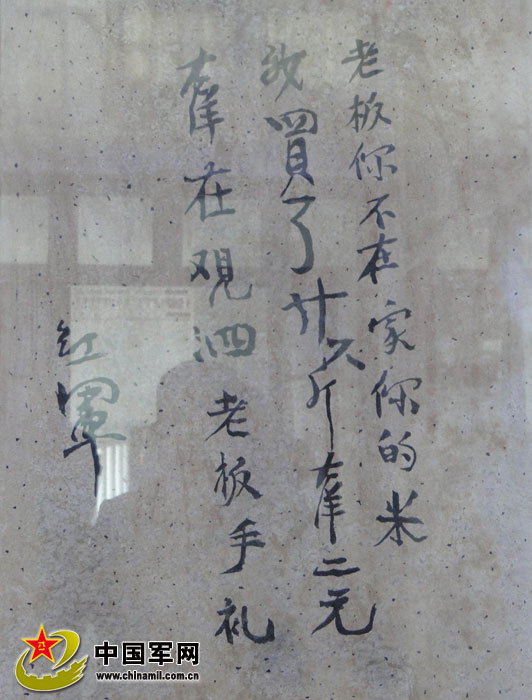 老板你不在家你的米
我買了廿六斤大洋二元
大洋在观泗老板手礼
红軍
中国军网
www.chinamil.com.cn